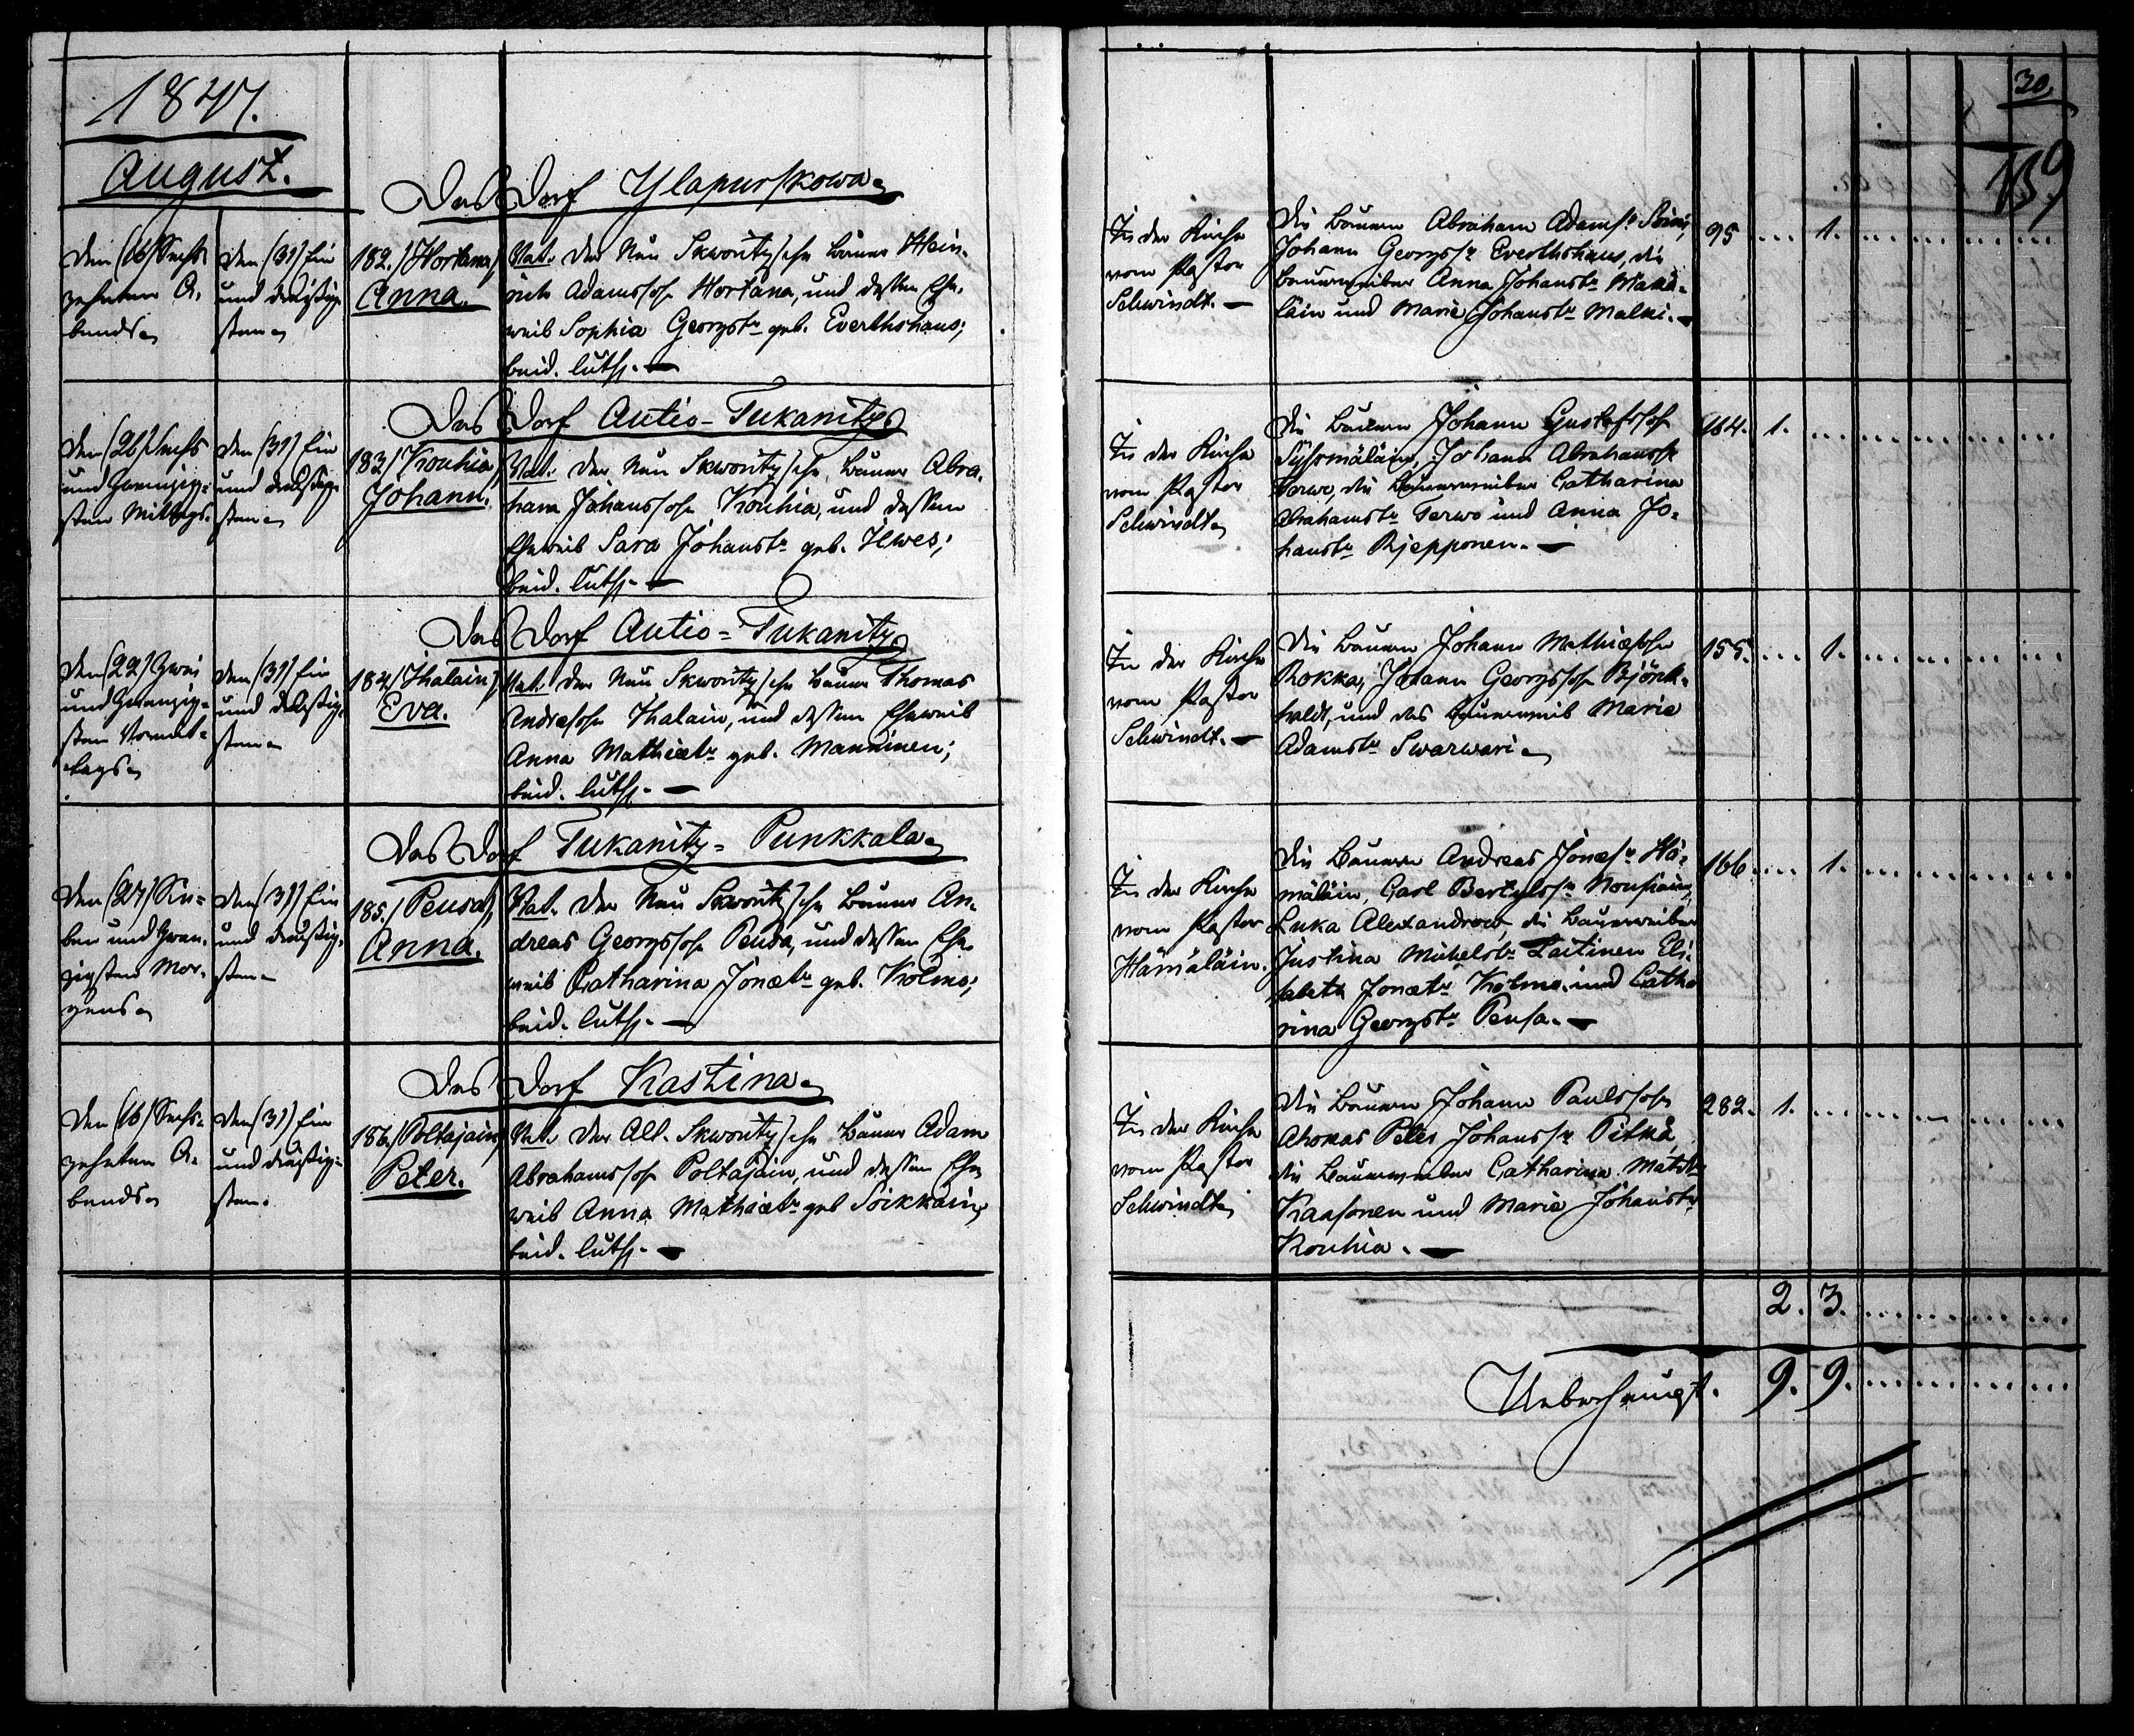 1847.
August.
Das Dorf Ylapurskowa.
Den (16) Sechs-
zehnten A-
bends.
den (31) Ein
und dreißig-
sten.
182./ Hortana,
Anna.
Vat. der Neu Skworitzsche Bauer Hein-
rich Adamssohn Hortana, und dessen Ehe-
weib Sophia Georgstr geb. Everthshaus;
beid. luth. —
Das Dorf Autio-Tukanitz.
Den (26) Sechs
und zwanzig-
sten Mittags.
den (31) Ein
und dreißig-
sten.
183/ Kouhia,
Johann.
Vat. der Neu Skworitzsche Bauer Abra-
ham Johanssohn Kouhia, und dessen
Eheweib Sara Johanstr geb. Ilwes;
beid. luth. —
Das Dorf Autio-Tukanitz.
Den (22) Zwei
und zwanzig-
sten Vormit-
tags.
den (31) Ein
und dreißig-
sten.
184/ Ihalain,
Eva.
Vat. der Neu Skworitzsche Bauer Thomas
Andreassohn Ihalain, und dessen Eheweib
Anna Mathiastr geb. Manninen;
beid. luth. —
Das Dorf Tukanitz-Punkkala.
Den (27) Sie-
ben und zwan-
zigsten Mor-
gens.
den (31) Ein
und dreißig-
sten.
185./ Pensa,
Anna.
Vat. der Neu Skworitzsche Bauer An-
dreas Georgssohn Pensa, und dessen Ehe-
weib Catharina Jonastr geb. Kolmo;
beid. luth. —
Das Dorf Kastina.
Den (16) Sechs-
zehnten A-
bends.
den (31) Ein
und dreißig-
sten.
186./ Poltajain,
Peter.
Vat. der Alt-Skworitzsche Bauer Adam
Abrahamssohn Poltajain, und dessen Ehe-
weib Anna Mathiastr geb Soikkain;
beid. luth. —
30.
159
In der Kirche
vom Pastor
Schwindt. —
Die Bauern Abraham Adamss
Johann Georgss Everthshaus, die
Bauerweiber Anna Johanstr Makä-
läin und Marie Johanstr Malki. —
95 ... 1.
In der Kirche
vom Pastor
Schwindt.
Die Bauern Johann Gustafssohn
Sysmäläin, Johann Abrahamss
Terwo, die Bauerweiber Catharina
Abrahamstr Terwo und Anna Jo-
hanstr Rjepponen. —
164. 1.
In der Kirche
vom Pastor
Schwindt. —
Die Bauern Johann Mathiassohn
Rokka, Johann Georgssohn Björk-
waldt, und das Bauerweib Marie
Adamstr Swarwari.
155. ... 1.
In der Kirche
vom Pastor
Hämäläin.
Die Bauern Andreas Jonass Hä-
mäläin, Carl Bertylss Nousiain,
Luka Alexandrow, die Bauerweiber
Justina Michelstr Laitinen Eli-
sabeth Jonastr Kolmo. und Catha
rina Georgstr Pensa. —
166. ... 1.
In der Kirche
vom Pastor
Schwindt.
Die Bauern Johann Paulssohn
Ahokas Peter Johanss Pitkä
die Bauerweiber Catharina Matstr
Kaasonen und Marie Johanstr
Kouhia. —
282. 1.
2. 3.
Ueberhaupt. 9. 9.